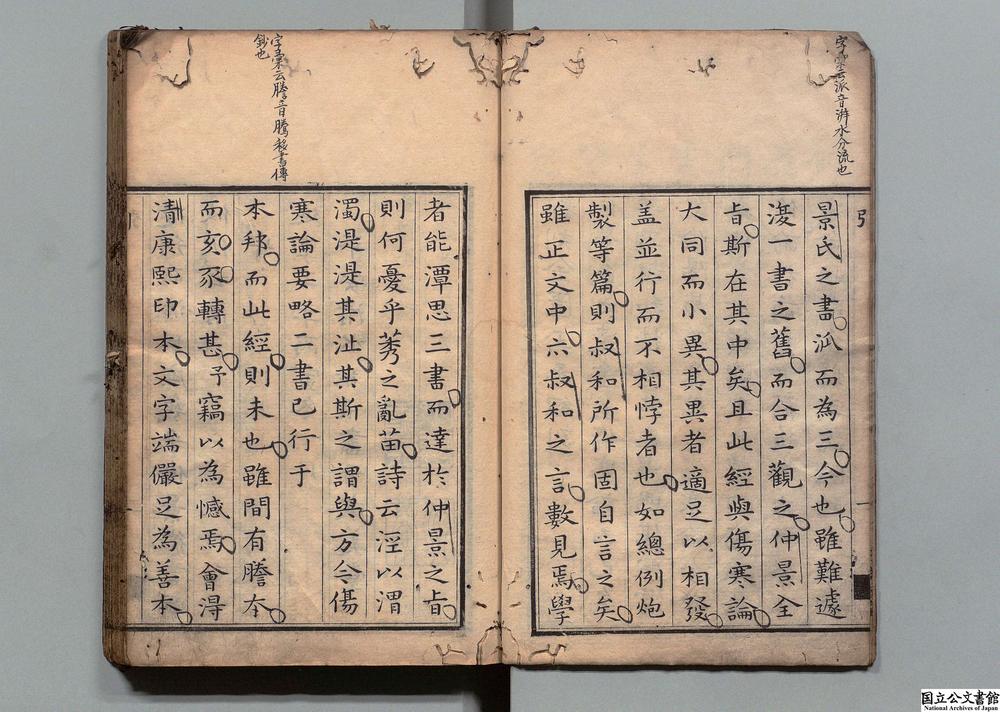 字彙云派音湃水分流也
引
景氏之書派而為三今也雖難遽
復一書之舊而合三觀之仲景全
旨斯在其中矣且此經與傷寒論
大同而小異其異者適足以相發
盖並行而不相悖者也如總例炮
製等篇則叔和所作固自言之矣
雖正文中六叔和之言數見焉學
字彙云謄音騰移書傳
鈔也
者能潭思三書而達於仲景之旨
則何憂乎莠之亂苗詩云涇以渭
濁湜湜其沚其斯之謂與方今傷
寒論要略二書已行于
本邦而此經則未也雖間有謄本
而亥豕轉甚予竊以為憾焉會得
清康熙印本文字端儼足為善本
国立公文書館
National Archives of Japan